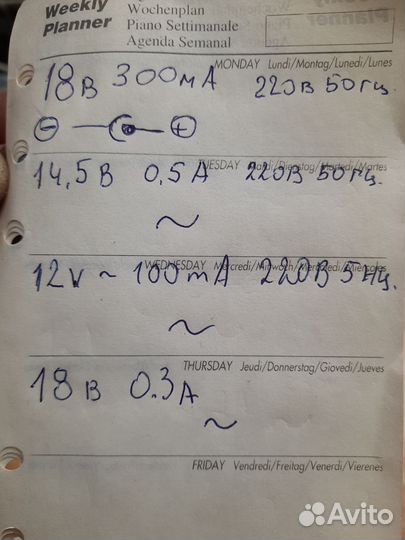 Weekly Planner
Wochenplan
Piano Settimanale
Agenda Semanal
MONDAY Lundi/Montag/Lunedi/Lunes
18В 300мА 220В 50гц.
⊖ ⊕
TUESDAY Mardi/Dienstag/Martedi/Martes
14,5В 0,5А 220В 50гц.
~
WEDNESDAY Mercredi/Mittwoch/Mercoledi/Miercoles
12v ~ 100mA 220В 5Нц.
~
THURSDAY Jeudi/Donnerstag/Giovedi/Jueves
18В 0.3А
~
FRIDAY Vendredi/Freitag/Venerdi/Vierenes
Avito